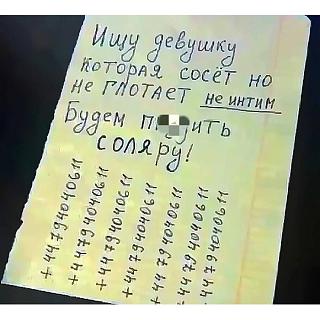 Ищу девушку
которая сосёт но
не глотает не интим
Будем п дить
соляру!
+447940040611
+447940040611
+447940040611
+447940040611
+447940040611
+447940040611
+447940040611